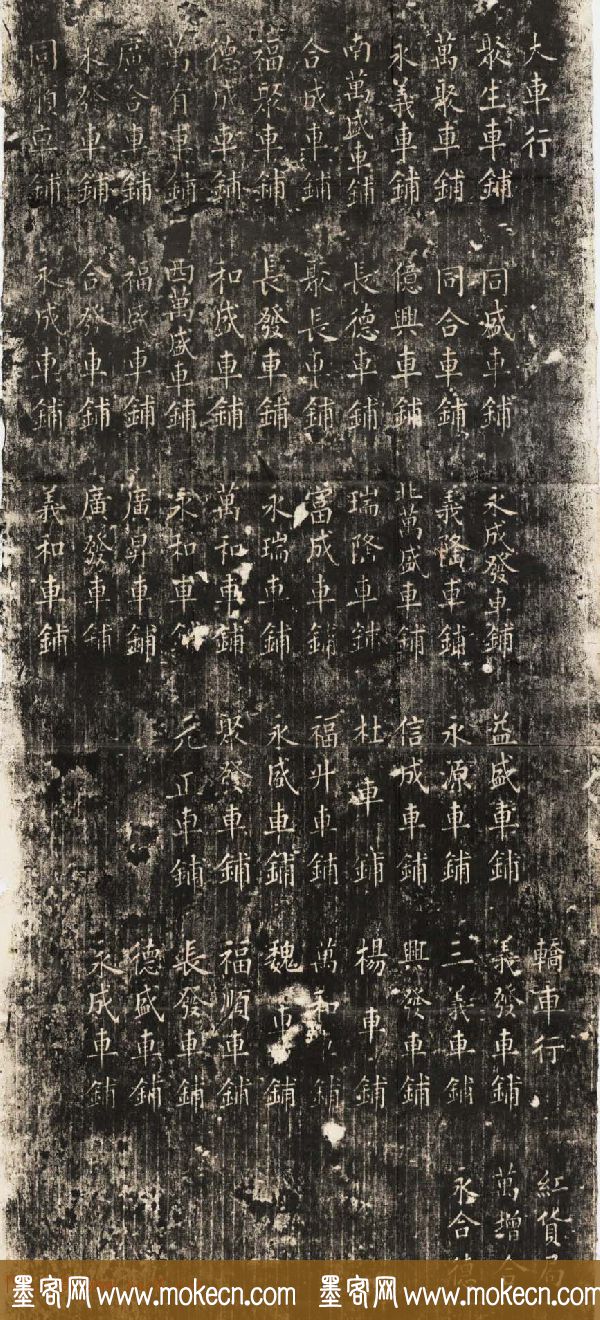 大車行
聚生車鋪
萬聚車鋪
永義車鋪
南萬盛車鋪
合成車鋪
福聚車鋪
德成車鋪
萬有車鋪
廣合車鋪
永發車鋪
同順車鋪
同盛車鋪
同合車鋪
億興車鋪
長德車鋪
聚長車鋪
長發車鋪
和盛車鋪
西萬盛車鋪
福盛車鋪
合發車鋪
永成車鋪
永成發車鋪
義隆車鋪
北萬盛車鋪
瑞隆車鋪
富成車鋪
永瑞車鋪
萬和車鋪
永和車
廣昇車鋪
廣發車鋪
義和車鋪
益盛車鋪
永源車鋪
信成車鋪
杜車鋪
福升車鋪
永盛車鋪
聚發車鋪
元正車鋪
轎車行
義發車鋪
三義車鋪
興發車鋪
楊車鋪
萬和車鋪
魏車鋪
福順車鋪
長發車鋪
德盛車鋪
永成車鋪
紅貨局
萬增合
永合德
墨客网 www.mokecn.com 墨客网 www.mokecn.com